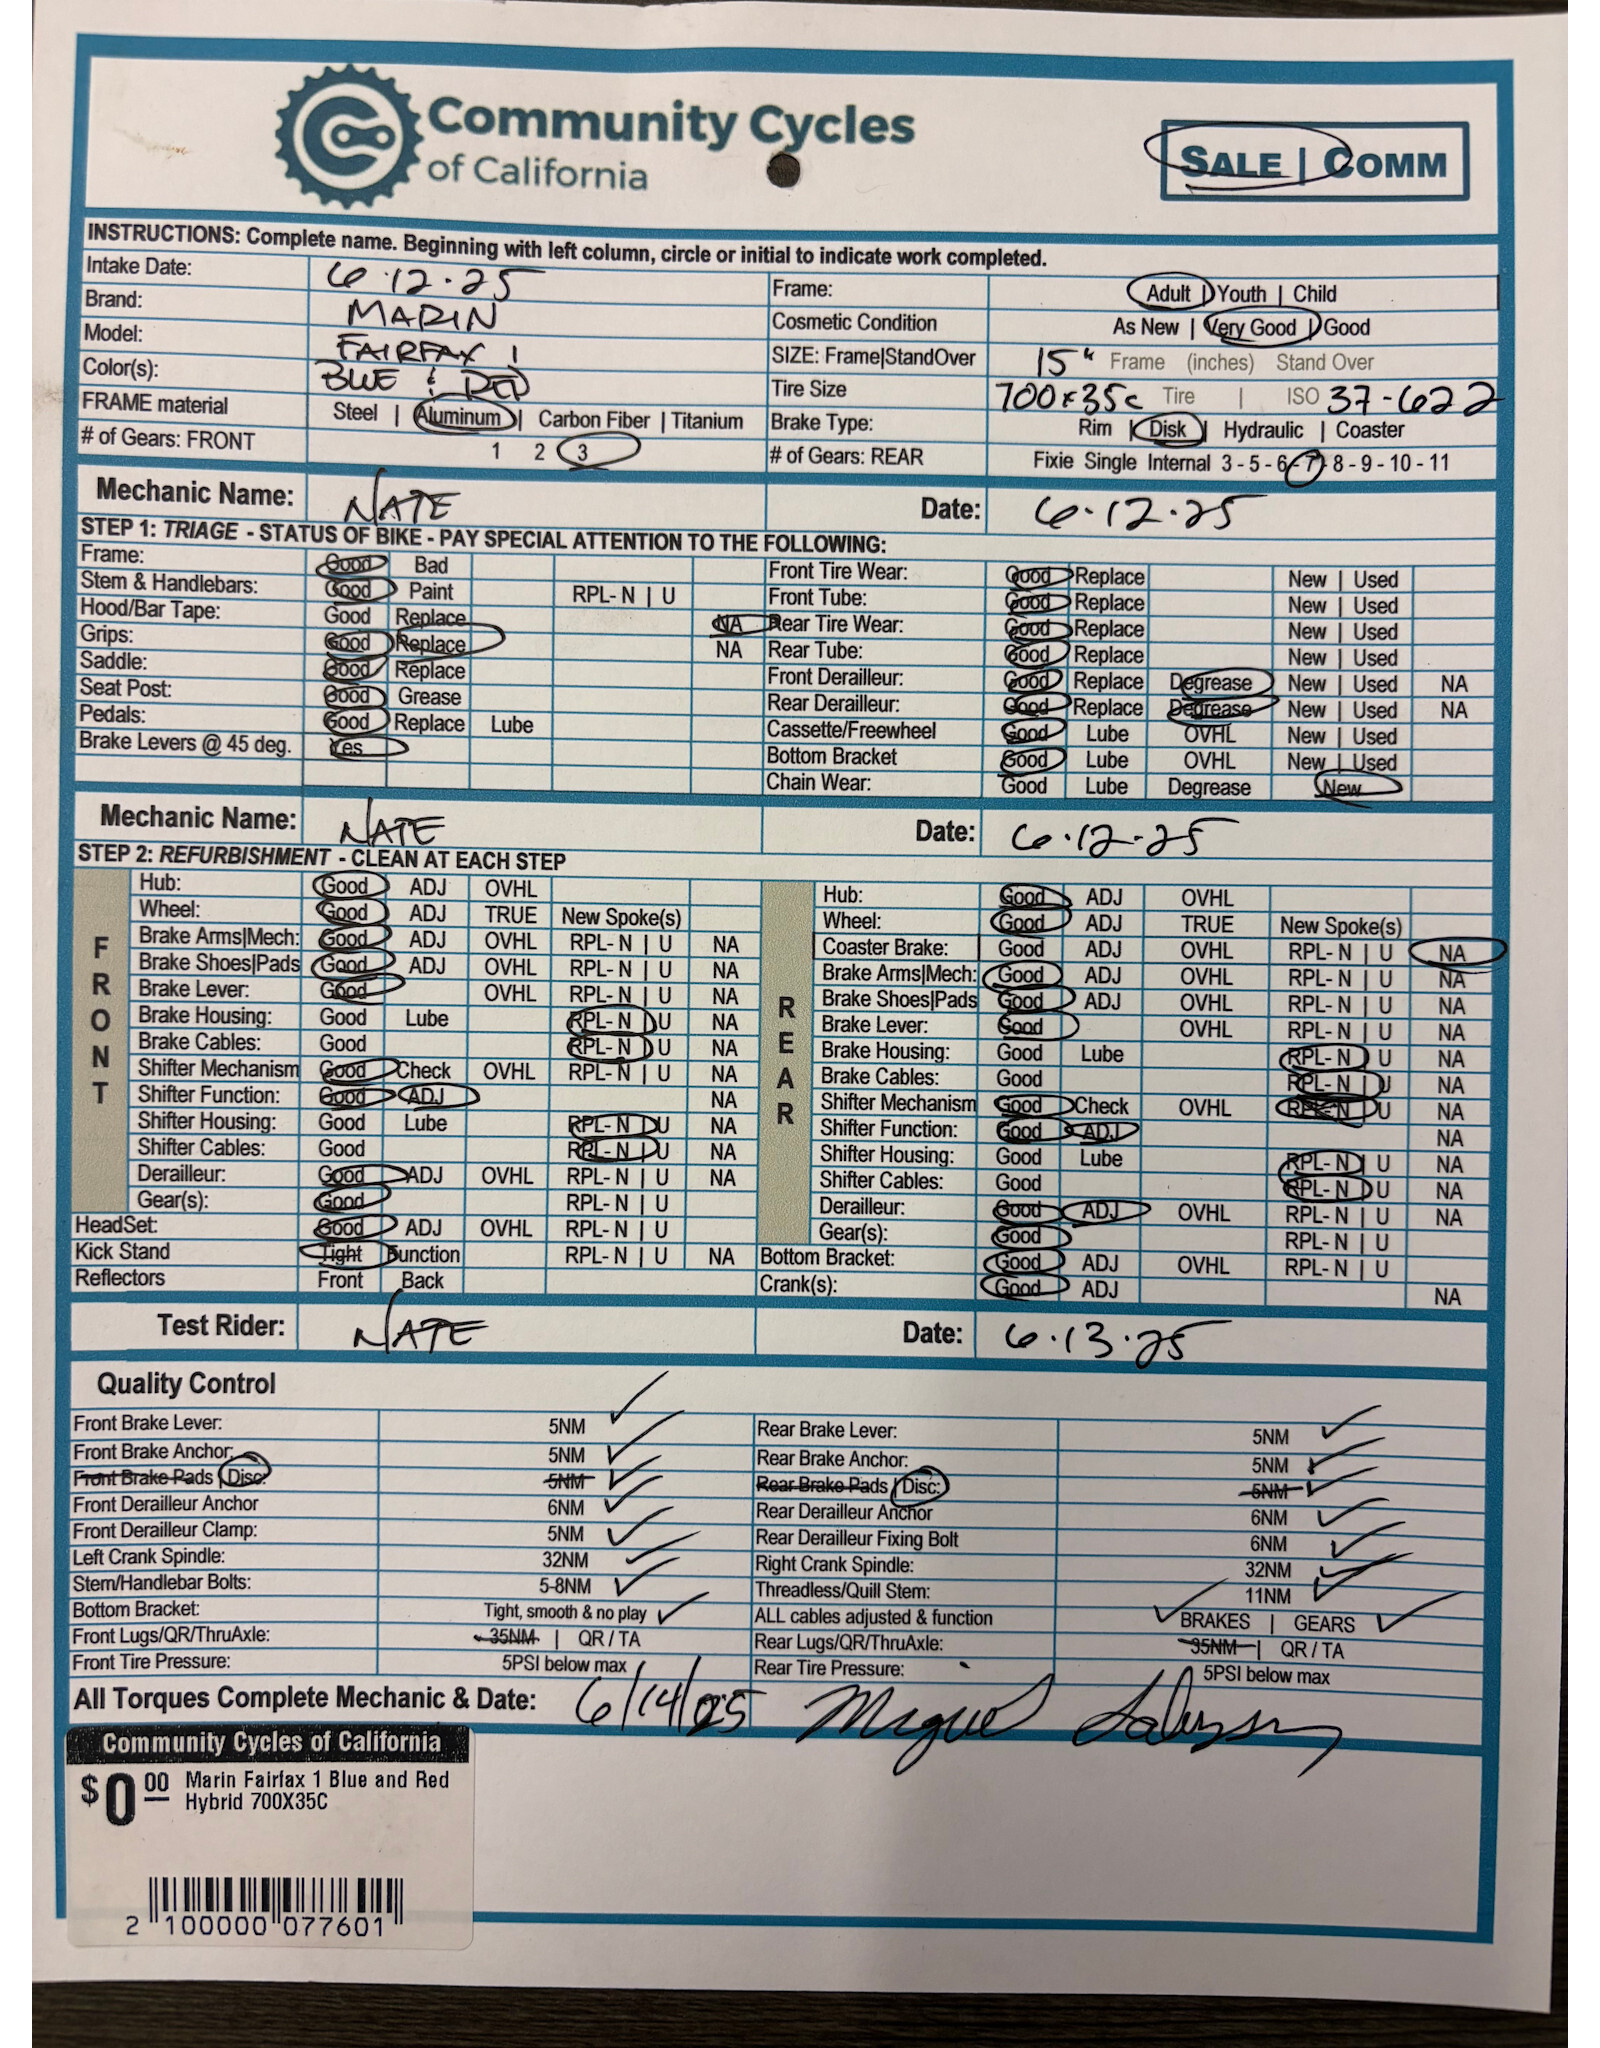 Community Cycles
of California
SALE | COMM
INSTRUCTIONS: Complete name. Beginning with left column, circle or initial to indicate work completed.
Intake Date: 6.12.25 Frame: Adult | Youth | Child
Brand: MARIN Cosmetic Condition As New | Very Good | Good
Model: FAIRFAX 1 SIZE: Frame|StandOver 15" Frame (inches) Stand Over
Color(s): BLUE & RED Tire Size 700x35c Tire | ISO 37-622
FRAME material Steel | Aluminum | Carbon Fiber | Titanium Brake Type: Rim | Disk | Hydraulic | Coaster
# of Gears: FRONT 1 2 3 # of Gears: REAR Fixie Single Internal 3 - 5 - 6 - 7 - 8 - 9 - 10 - 11
Mechanic Name: NATE Date: 6.12.25
STEP 1: TRIAGE - STATUS OF BIKE - PAY SPECIAL ATTENTION TO THE FOLLOWING:
Frame: Good Bad Front Tire Wear: Good Replace New | Used
Stem & Handlebars: Good Paint RPL- N | U Front Tube: Good Replace New | Used
Hood/Bar Tape: Good Replace NA Rear Tire Wear: Good Replace New | Used
Grips: Good Replace NA Rear Tube: Good Replace New | Used
Saddle: Good Replace Front Derailleur: Good Replace Degrease New | Used NA
Seat Post: Good Grease Rear Derailleur: Good Replace Degrease New | Used NA
Pedals: Good Replace Lube Cassette/Freewheel Good Lube OVHL New | Used
Brake Levers @ 45 deg. Yes Bottom Bracket Good Lube OVHL New | Used
Chain Wear: Good Lube Degrease New
Mechanic Name: NATE Date: 6.12.25
STEP 2: REFURBISHMENT - CLEAN AT EACH STEP
FRONT
Hub: Good ADJ OVHL
Wheel: Good ADJ TRUE New Spoke(s)
Brake Arms|Mech: Good ADJ OVHL RPL- N | U NA
Brake Shoes|Pads Good ADJ OVHL RPL- N | U NA
Brake Lever: Good OVHL RPL- N | U NA
Brake Housing: Good Lube RPL- N | U NA
Brake Cables: Good RPL- N | U NA
Shifter Mechanism Good Check OVHL RPL- N | U NA
Shifter Function: Good ADJ NA
Shifter Housing: Good Lube RPL- N | U NA
Shifter Cables: Good RPL- N | U NA
Derailleur: Good ADJ OVHL RPL- N | U NA
Gear(s): Good RPL- N | U
HeadSet: Good ADJ OVHL RPL- N | U
Kick Stand Tight Function RPL- N | U NA
Reflectors Front Back
REAR
Hub: Good ADJ OVHL
Wheel: Good ADJ TRUE New Spoke(s)
Coaster Brake: Good ADJ OVHL RPL- N | U NA
Brake Arms|Mech: Good ADJ OVHL RPL- N | U NA
Brake Shoes|Pads Good ADJ OVHL RPL- N | U NA
Brake Lever: Good OVHL RPL- N | U NA
Brake Housing: Good Lube RPL- N | U NA
Brake Cables: Good RPL- N | U NA
Shifter Mechanism Good Check OVHL RPL- N | U NA
Shifter Function: Good ADJ NA
Shifter Housing: Good Lube RPL- N | U NA
Shifter Cables: Good RPL- N | U NA
Derailleur: Good ADJ OVHL RPL- N | U NA
Gear(s): Good RPL- N | U
Bottom Bracket: Good ADJ OVHL RPL- N | U
Crank(s): Good ADJ NA
Test Rider: NATE Date: 6.13.25
Quality Control
Front Brake Lever: 5NM ✓ Rear Brake Lever: 5NM ✓
Front Brake Anchor: 5NM ✓ Rear Brake Anchor: 5NM ✓
Front Brake Pads | Disc: 5NM ✓ Rear Brake Pads | Disc: 5NM ✓
Front Derailleur Anchor 6NM ✓ Rear Derailleur Anchor 6NM ✓
Front Derailleur Clamp: 5NM ✓ Rear Derailleur Fixing Bolt 6NM ✓
Left Crank Spindle: 32NM ✓ Right Crank Spindle: 32NM ✓
Stem/Handlebar Bolts: 5-8NM ✓ Threadless/Quill Stem: 11NM ✓
Bottom Bracket: Tight, smooth & no play ✓ ALL cables adjusted & function ✓ BRAKES | GEARS ✓
Front Lugs/QR/ThruAxle: 35NM | QR / TA Rear Lugs/QR/ThruAxle: 35NM | QR / TA
Front Tire Pressure: 5PSI below max Rear Tire Pressure: 5PSI below max
All Torques Complete Mechanic & Date: 6/14/25 Miguel
Community Cycles of California
$0.00 Marin Fairfax 1 Blue and Red
Hybrid 700X35C
2 100000 077601